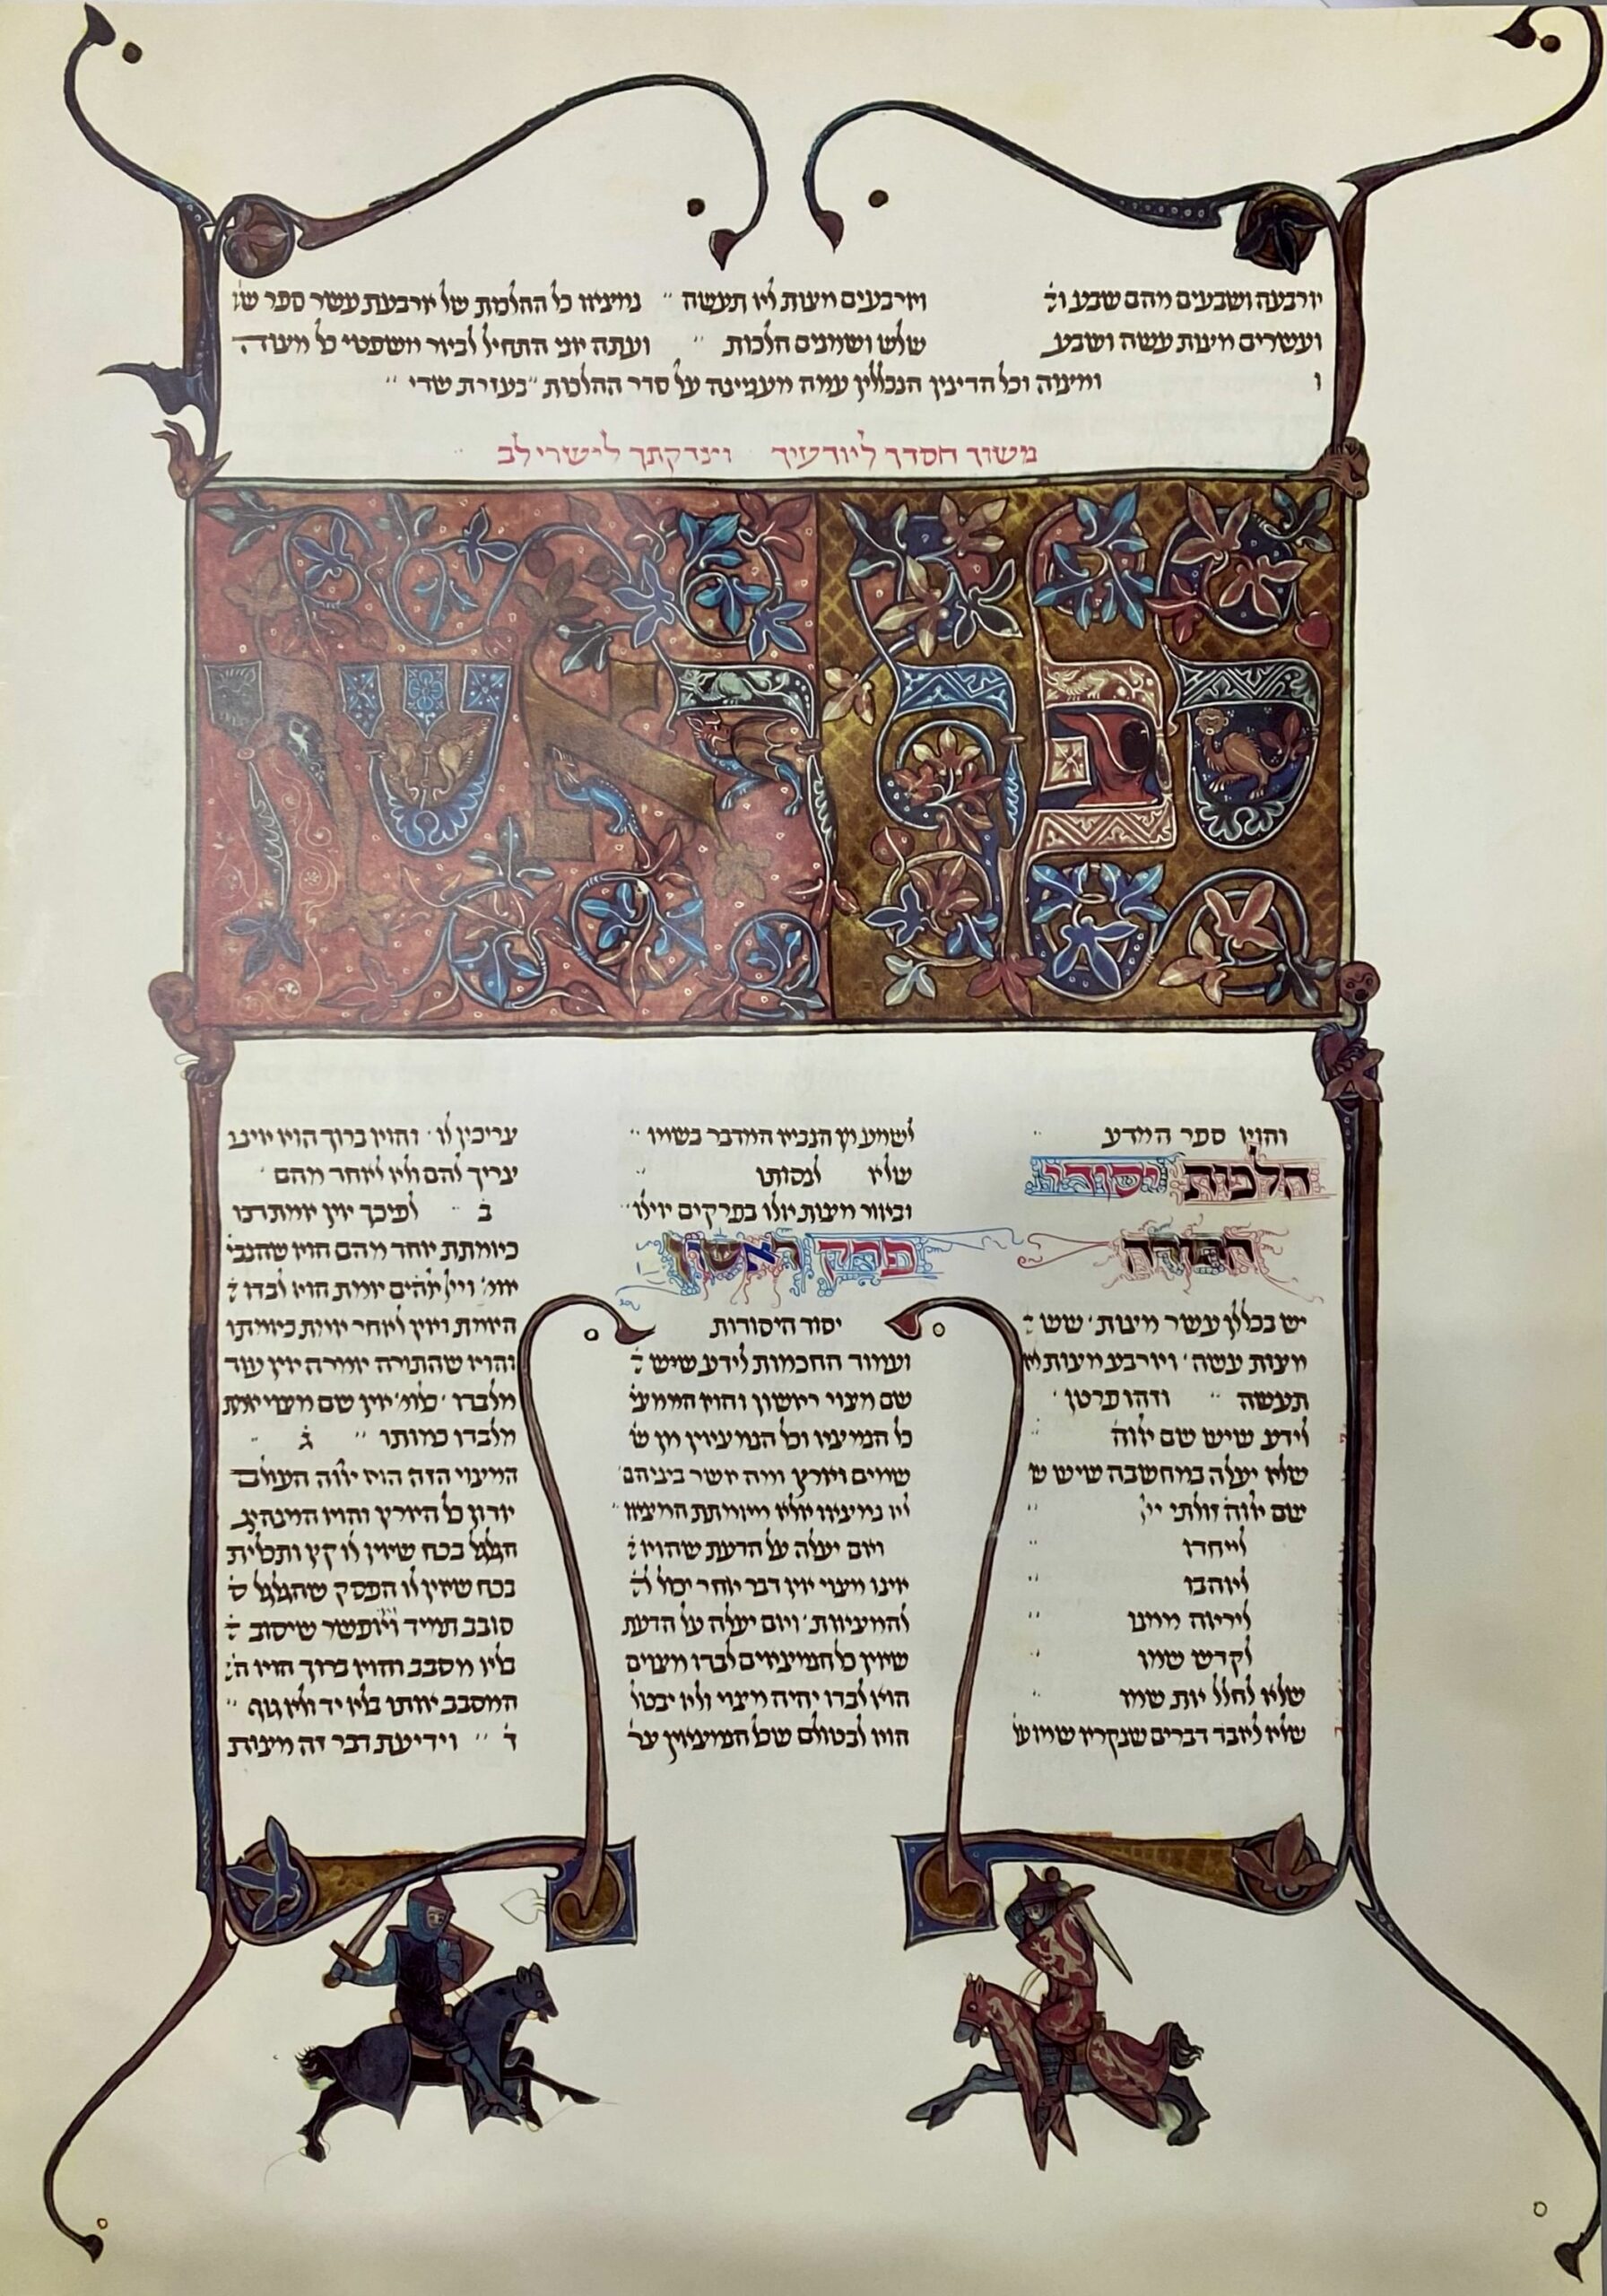 ארבעה ושבעים מהם שבע ו
ועשרים מצות עשה ושבע
ו
וארבעים מצות לא תעשה ״ נמצאו כל ההלכות של ארבעת עשר ספר ש
שלש ושמנים הלכות ״ ועתה אני התחיל לבאר משפטי כל מצוה
ומצוה וכל הדינין הנכללין עמה מעניינה על סדר ההלכות ״ בעזרת שדי ״
משוך חסדך ליודעיך וצדקתך לישרי לב
ספר ראשון
והוא ספר המדע
הלכות יסודי
התורה
יש בכללן עשר מצות׳ שש
מצות עשה׳ וארבע מצות לא
תעשה ״ וזהו פרטן׳
לידע שיש שם אלוה
שלא יעלה במחשבה שיש ש
שם אלוה זולתי ייי
לייחדו
לאוהבו
ליראה ממנו
לקדש שמו
שלא לחלל את שמו
שלא לאבד דברים שנקרא שמו ע
לשמע מן הנביא המדבר בשמו
שלא לנסותו
וביאור מצות אלו בפרקים אילו
פרק ראשון
יסוד היסודות
ועמוד החכמות לידע שיש
שם מצוי ראשון והוא הממצי
כל הנמצאו וכל הנמצאין מן ש
שמים וארץ ומה אשר ביניהם
לא נמצאו אלא מאמתת המצאו
ואם יעלה על הדעת שהוא
אינו מצוי אין דבר אחר יכול ל
להמצאות׳ ואם יעלה על הדעת
שאין כל הנמצאים לבדו מצוים
הוא לבדו יהיה מצוי ולא יבטל
הוא לבטולם שכל הנמצאין צר
צריכין לו׳ והוא ברוך הוא אינו
צריך להם ולא לאחד מהם
ב לפיכך אין אמתתו
כאמתת אחד מהם הוא שהנבי
אומ׳ וייי אלהים אמת הוא לבדו
האמת ואין לאחר אמת כאמתו
והוא שהתורה אומרה אין עוד
מלבדו׳ כלומ׳ אין שם מצוי אמת
מלבדו כמותו ״ ג
המצוי הזה הוא אלוה העולם
אדון כל הארץ והוא המנהיג
הגלגל בכח שאין לו קץ ותכלית
בכח שאין לו הפסק שהגלגל ס
סובב תמיד ואי אפשר שיסוב
בלא מסבב והוא ברוך הוא ה
המסבב אותו בלא יד ולא גוף ״
ד ״ וידיעת דבר זה מצות